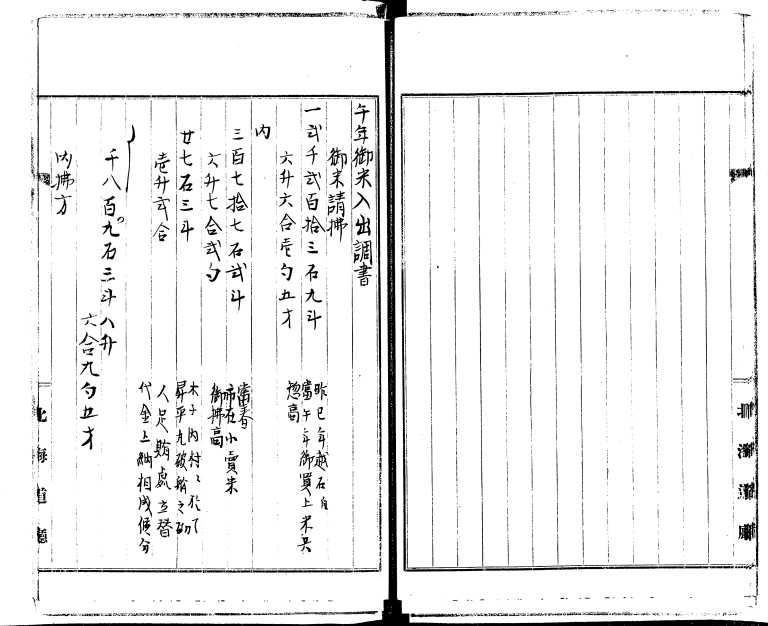 午年御米入出調書
御米請拂
一弐千弐百拾三石九斗
六升六合壱勺五才
昨巳年越石自
當午年御買上米共
惣高
内
三百七拾七石弐斗
六升七合弐勺
當春
市在小賣米
御拂高
廿七石三斗
壱升弐合
木子内村ニ於て
昇平丸破船之砌
人足賄處立替
代金上納相成候分
千八百九石三斗八升
六合九勺五才
内拂方
北海道廳
北海道廳